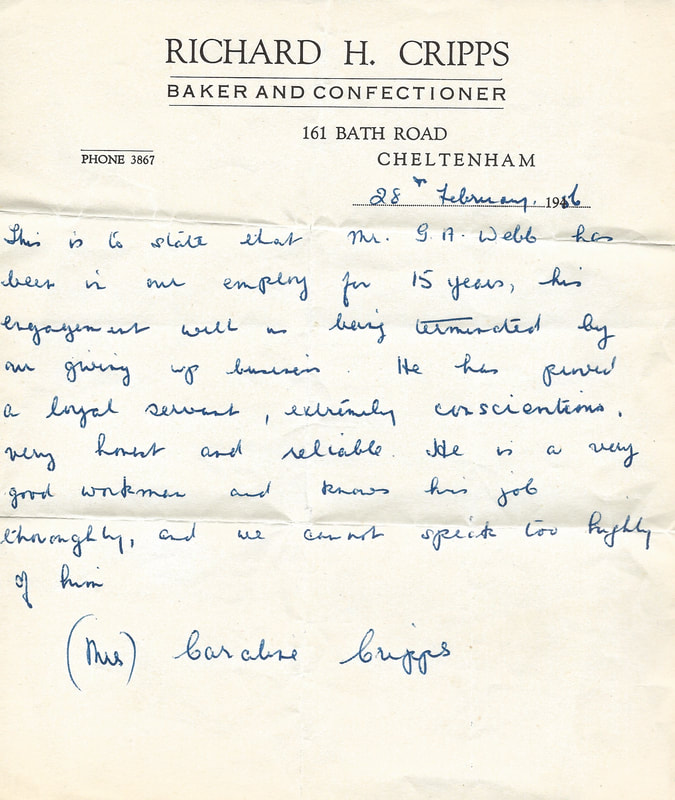 RICHARD H. CRIPPS
BAKER AND CONFECTIONER
161 BATH ROAD
PHONE 3867
CHELTENHAM
28th February, 1956
This is to state that Mr. G. A. Webb has
been in our employ for 15 years, his
engagement with us being terminated by
our giving up business. He has proved
a loyal servant, extremely conscientious,
very honest and reliable. He is a very
good workman and knows his job
thoroughly, and we cannot speak too highly
of him
(Mrs) Caroline Cripps